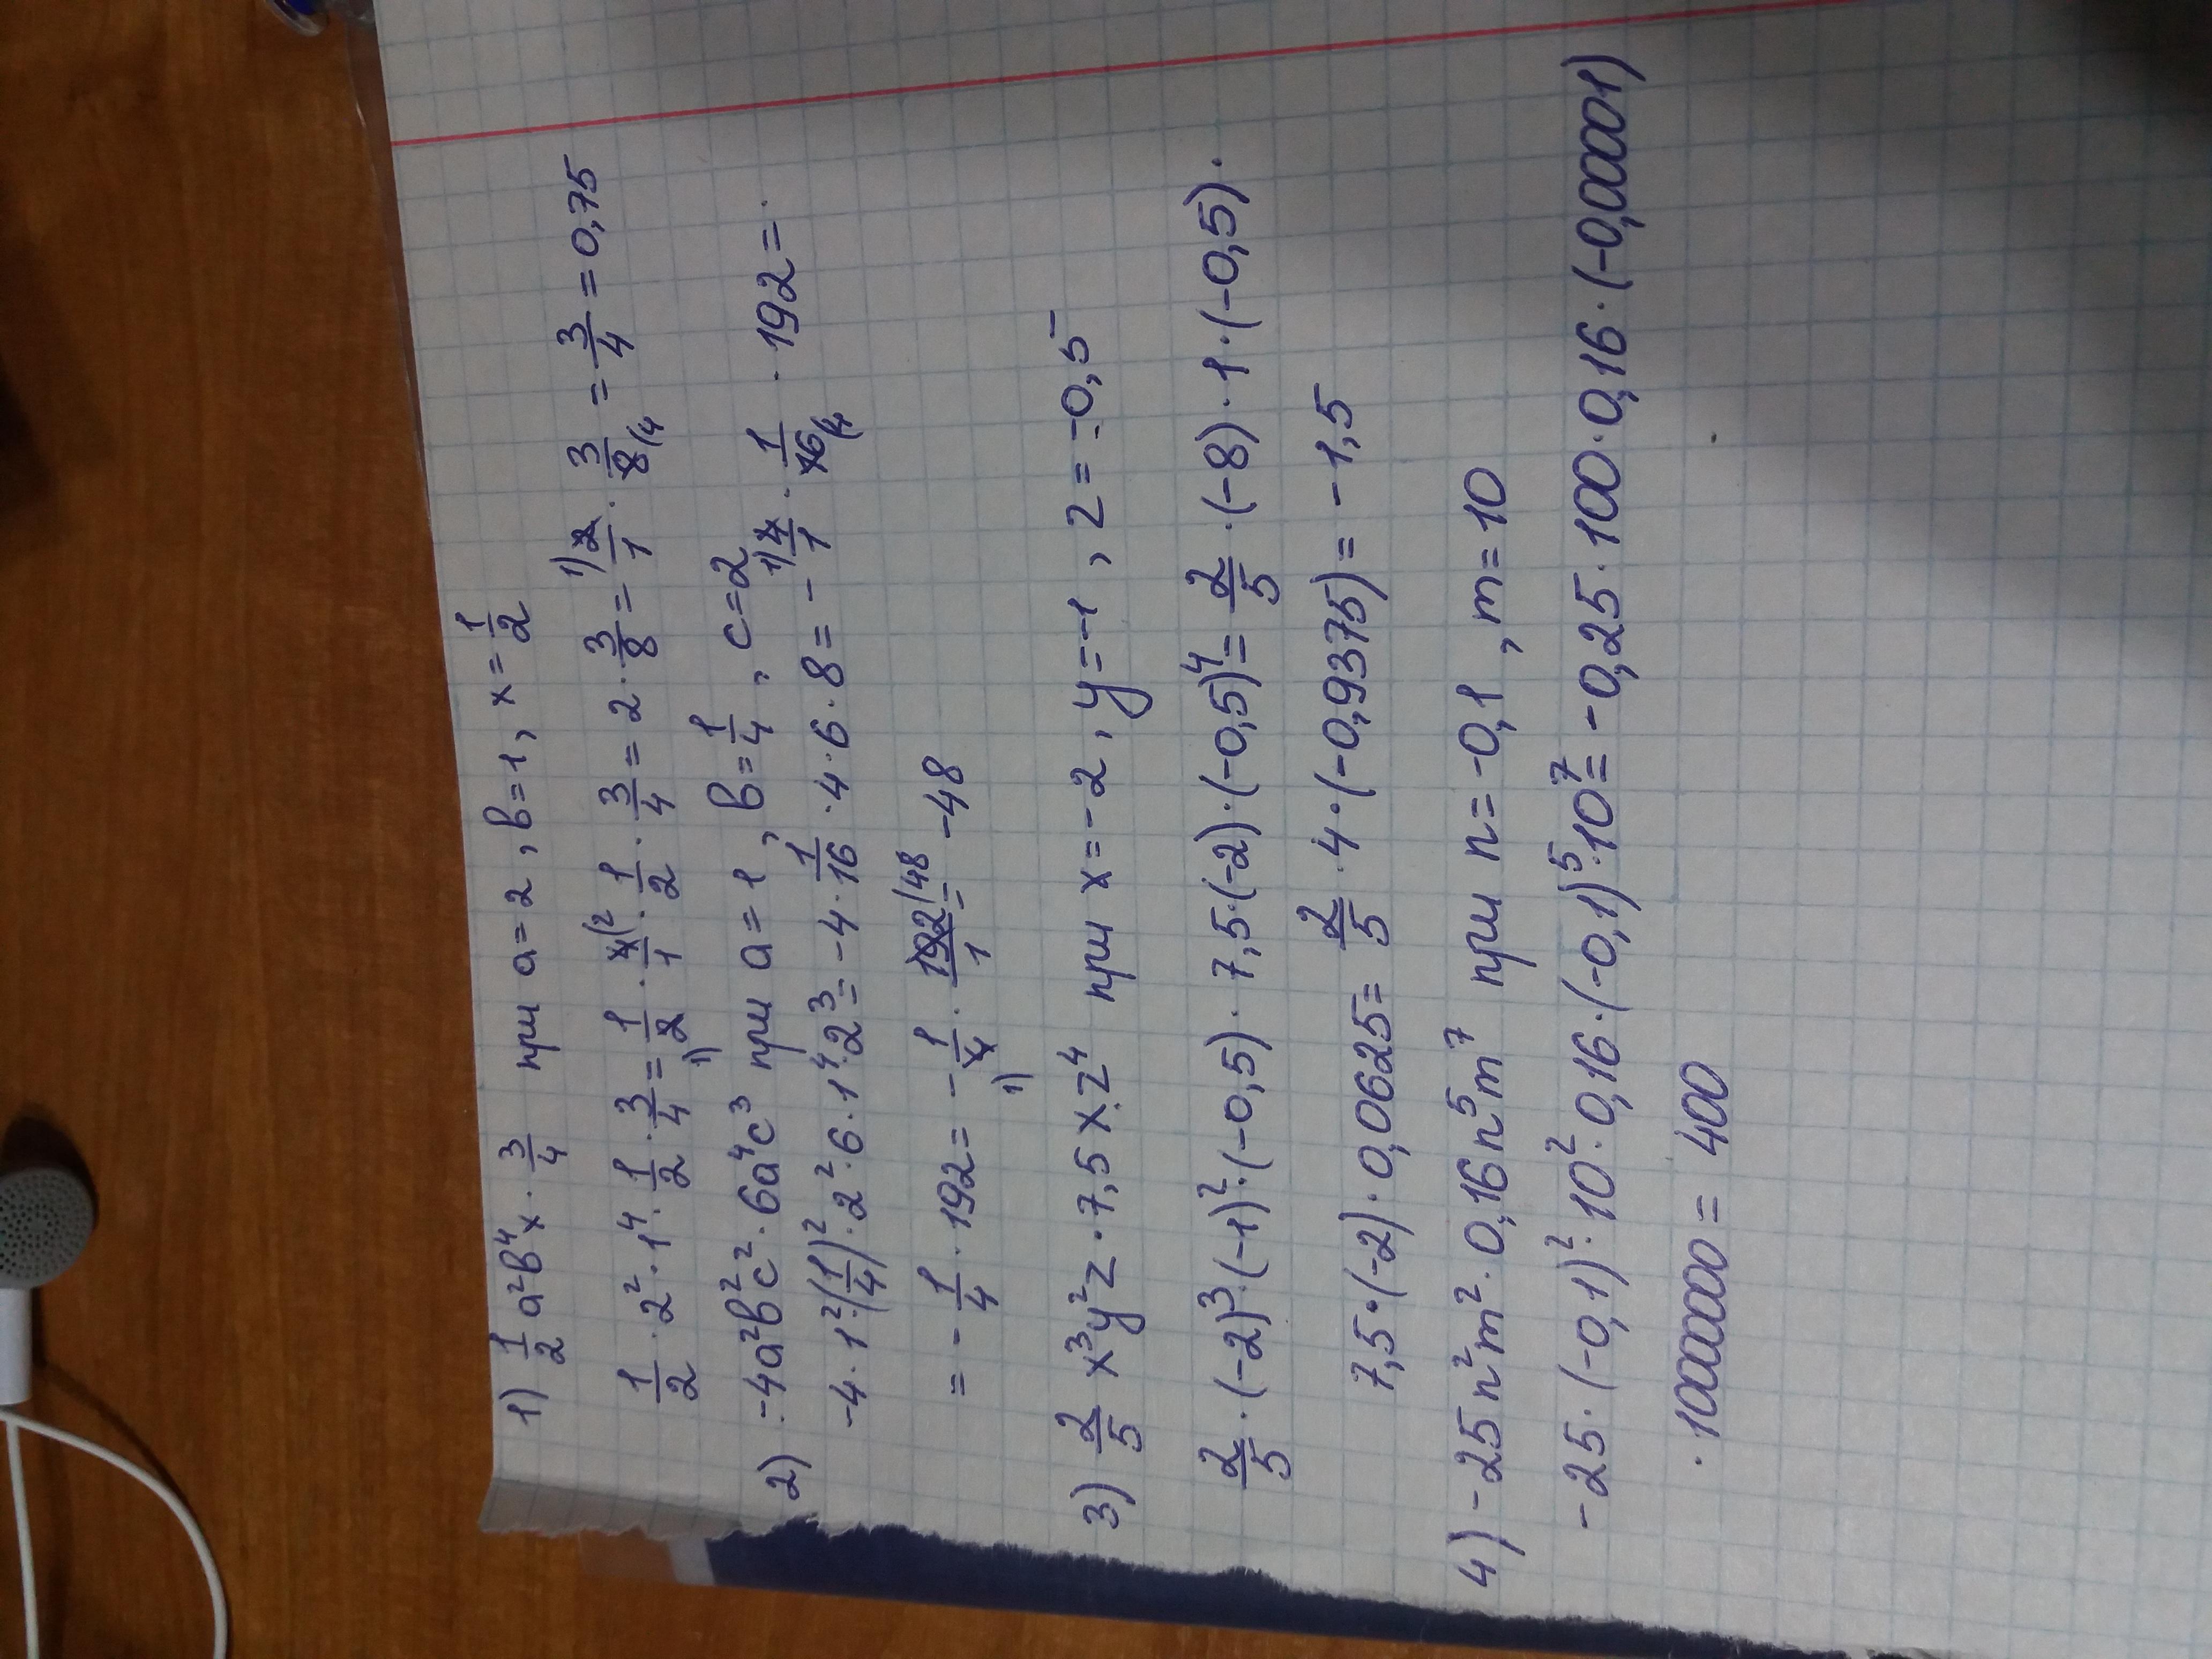 1) 1/2 a²b⁴x · 3/4 при a = 2, b = 1, x = 1/2
1/2 · 2² · 1⁴ · 1/2 · 3/4 = 1/2 · 4/1 · 1/2 · 3/4 = 2 · 3/8 = 2/1 · 3/8 = 3/4 = 0,75
2) -4a²b²c² · 6a⁴c³ при a = 1, b = 1/4, c = 2
-4 · 1² · (1/4)² · 2² · 6 · 1⁴ · 2³ = -4 · 1/16 · 4 · 6 · 8 = - 4/1 · 1/16 · 192 =
= - 1/4 · 192 = - 1/4 · 192/1 = -48
3) 2/5 x³y²z · 7,5 x z⁴ при x = -2, y = -1, z = -0,5
2/5 · (-2)³ · (-1)² · (-0,5) · 7,5 · (-2) · (-0,5)⁴ = 2/5 · (-8) · 1 · (-0,5) ·
7,5 · (-2) · 0,0625 = 2/5 · 4 · (-0,9375) = -1,5
4) -25n²m² · 0,16n⁵m⁷ при n = -0,1, m = 10
-25 · (-0,1)² · 10² · 0,16 · (-0,1)⁵ · 10⁷ = -0,25 · 100 · 0,16 · (-0,00001)
· 10000000 = 400